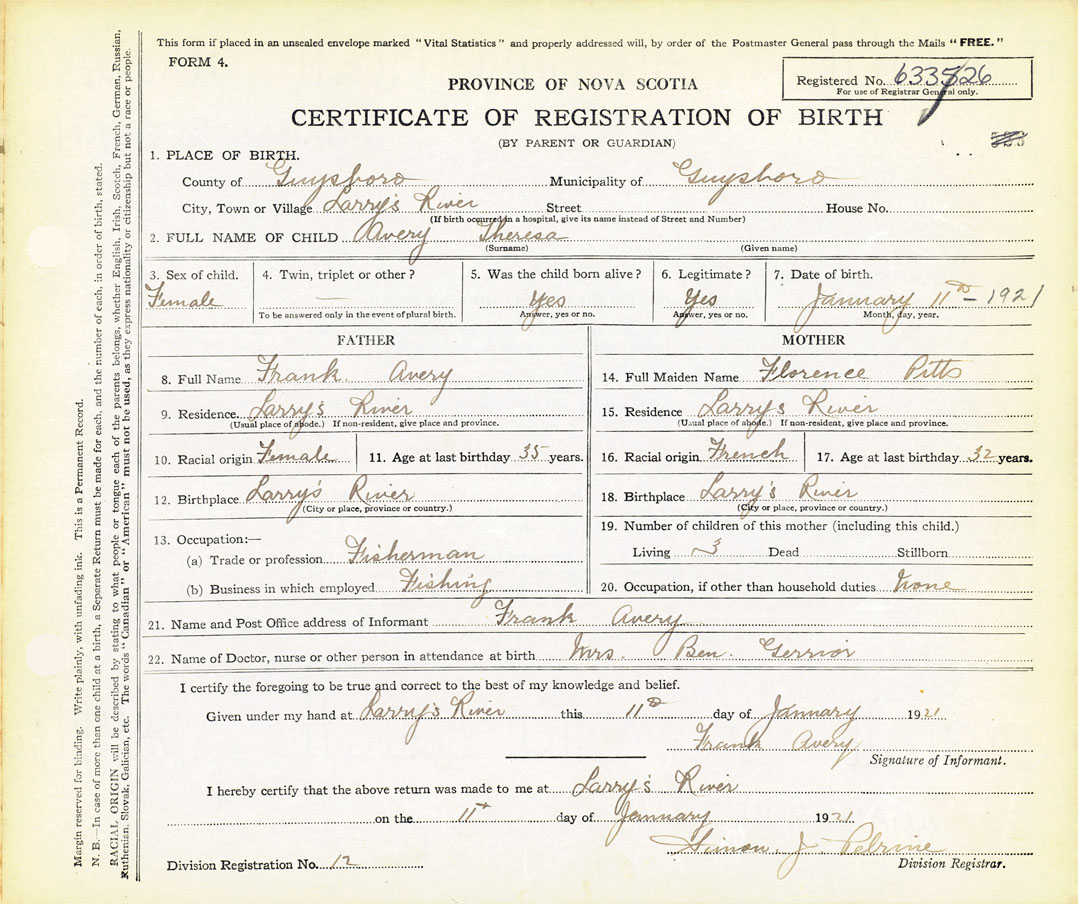 This form if placed in an unsealed envelope marked "Vital Statistics" and properly addressed will, by order of the Postmaster General pass through the Mails "FREE."
FORM 4.
Registered No. 633526
For use of Registrar General only.
PROVINCE OF NOVA SCOTIA
CERTIFICATE OF REGISTRATION OF BIRTH
(BY PARENT OR GUARDIAN)
1. PLACE OF BIRTH.
County of Guysboro Municipality of Guysboro
City, Town or Village Larry's River Street House No.
(If birth occurred in a hospital, give its name instead of Street and Number)
2. FULL NAME OF CHILD Avery Theresa
(Surname) (Given name)
3. Sex of child. 4. Twin, triplet or other? 5. Was the child born alive? 6. Legitimate? 7. Date of birth.
Female — Yes Yes January 11th - 1921
To be answered only in the event of plural birth. Answer, yes or no. Answer, yes or no. Month, day, year.
FATHER
8. Full Name Frank Avery
9. Residence. Larry's River
(Usual place of abode.) If non-resident, give place and province.
10. Racial origin Female 11. Age at last birthday 35 years.
12. Birthplace Larry's River
(City or place, province or country.)
13. Occupation:—
(a) Trade or profession Fisherman
(b) Business in which employed Fishing
MOTHER
14. Full Maiden Name Florence Pitts
15. Residence Larrys River
(Usual place of abode.) If non-resident, give place and province.
16. Racial origin French 17. Age at last birthday 32 years.
18. Birthplace Larry's River
(City or place, province or country.)
19. Number of children of this mother (including this child.)
Living 3 Dead Stillborn
20. Occupation, if other than household duties None
21. Name and Post Office address of Informant Frank Avery
22. Name of Doctor, nurse or other person in attendance at birth Mrs. Ben. Gerrior
I certify the foregoing to be true and correct to the best of my knowledge and belief.
Given under my hand at Larry's River this 11th day of January 1921
Frank Avery
Signature of Informant.
I hereby certify that the above return was made to me at Larry's River
on the 11th day of January 1921
Simon J Pelrine
Division Registration No. 12 Division Registrar.
Margin reserved for binding. Write plainly, with unfading ink. This is a Permanent Record.
N. B.—In case of more than one child at a birth, a Separate Return must be made for each, and the number of each, in order of birth, stated.
RACIAL ORIGIN will be described by stating to what people or tongue each of the parents belongs, whether English, Irish, Scotch, French, German, Russian,
Ruthenian, Slovak, Galician, etc. The words "Canadian" or "American" must not be used, as they express nationality or citizenship but not a race or people.